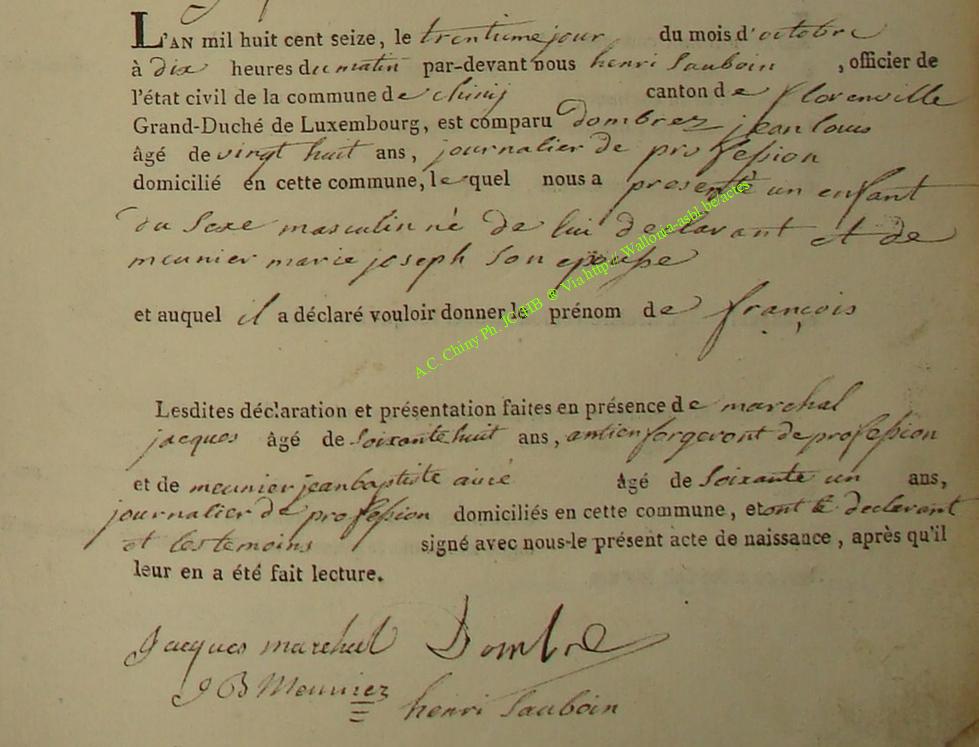 L'AN mil huit cent seize, le trentieme jour du mois d'octobre
à dix heures du matin par-devant nous henri Sauboin , officier de
l'état civil de la commune de chinij canton de florenville
Grand-Duché de Luxembourg, est comparu Dombrez jean louis
âgé de vingt huit ans, journalier de profession
domicilié en cette commune, le quel nous a presenté un enfant
du Sexe masculin né de lui declarant et de
meunier marie joseph Son epouse
et auquel il a déclaré vouloir donner le prénom de françois
A.C. Chiny Ph. JC. HB @ Via http://Wallonia-asbl.be/actes
Lesdites déclaration et présentation faites en présence de marchal
jacques âgé de Soixante huit ans, antien forgeront de profession
et de meunier jean baptiste âgé de Soixante un ans,
journalier de profession domiciliés en cette commune, et ont le declarant
et les temoins signé avec nous le présent acte de naissance, après qu'il
leur en a été fait lecture.
Jacques marchal Dombre
J B Meuniez
henri Sauboin